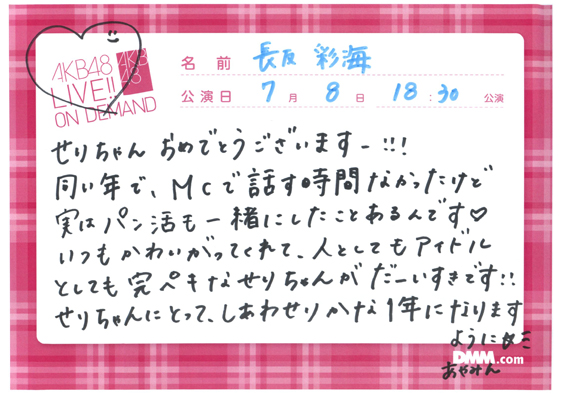 AKB48
LIVE!!
ON DEMAND
AKB
48
名前 長友 彩海
公演日 7月 8日 18:30 公演
せりちゃん おめでとうございますー!!!
同い年で、MCで話す時間なかったけど
実はパン活も一緒にしたことあるんです♡
いつもかわいがってくれて、人としてもアイドル
としても完ペキなせりちゃんがだーいすきです!!
せりちゃんにとって、しあわせりかな1年になります
ように
DMM.com
あやみん